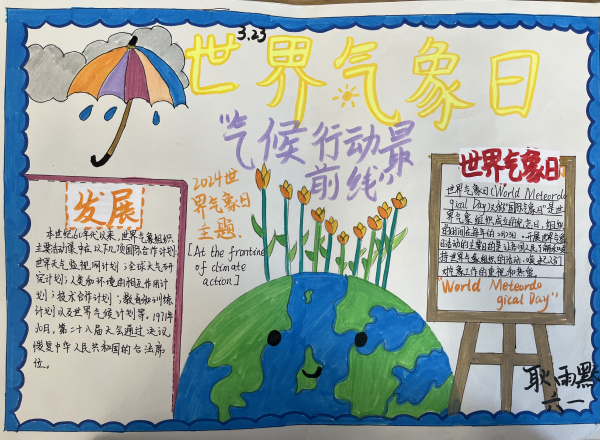 3.23
世界气象日
"气候行动最
前线"
2024世
界气象日
主题
[At the frontine
of dimate
action]
发展
本世纪60年代以来,世界气象组织
主要活动集中在以下几项国际合作计划
世界天气监视网计划;全球大气研
究计划;人类和环境的相互作用计
划;技术合作计划;教育和训练
计划以及世界气候计划等。1971年
第二十八届大会通过决议
恢复中华人民共和国的合法席
位。
世界气象日
世界气象日(World Meteordo
gical Day)又称"国际气象日"是世
界气象组织成立的纪念日,
时间在每年的3月23日,开展世界气象
日活动的主要目的是让各国人民了解和支
持世界气象组织的活动,唤起人们
对气象工作的重视和热爱。
"World Meteordo
gical Day"
耿雨默
六一